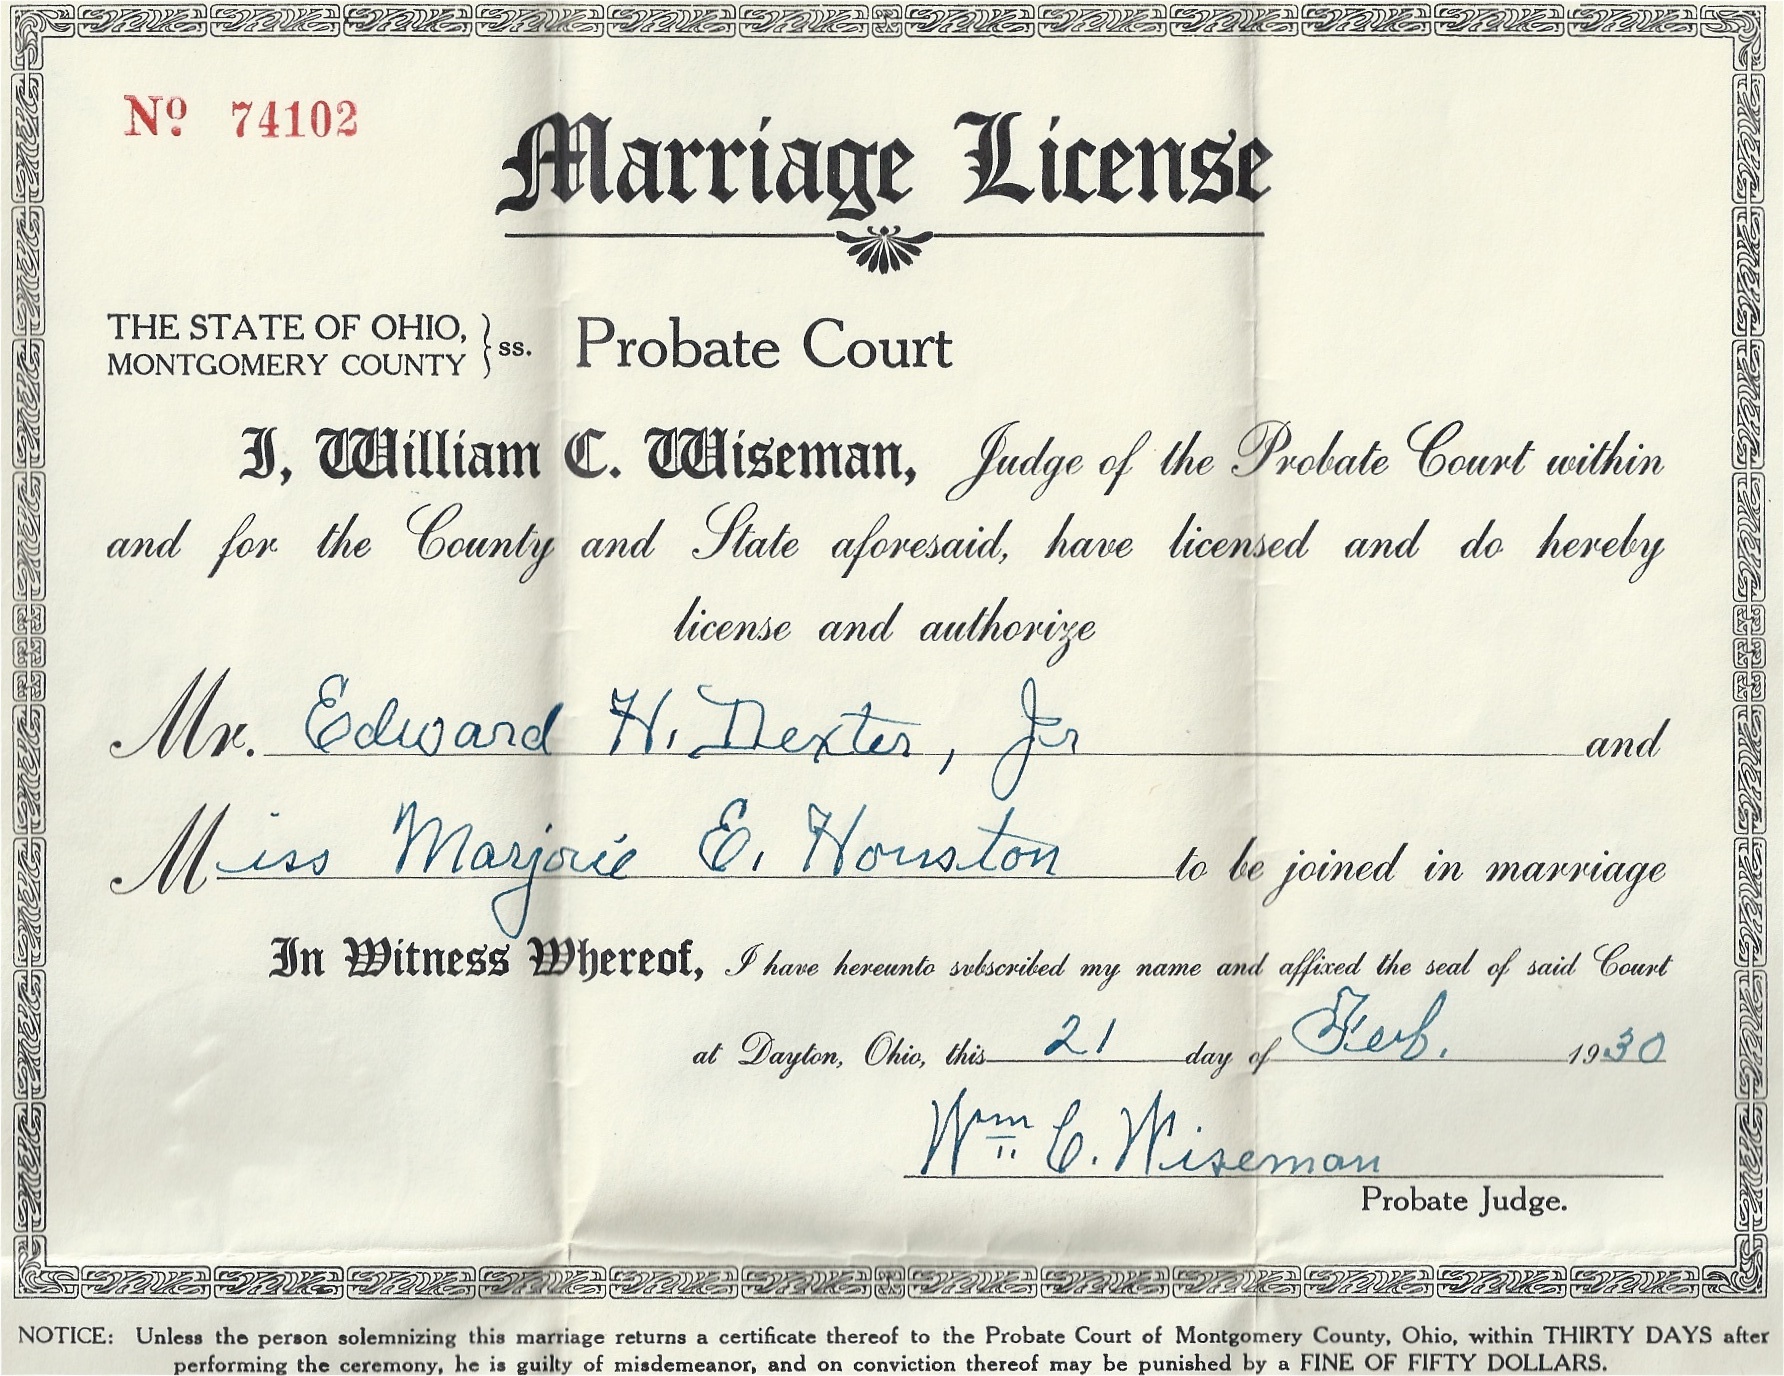 Nº 74102
Marriage License
THE STATE OF OHIO,
MONTGOMERY COUNTY } ss. Probate Court
I, William C. Wiseman, Judge of the Probate Court within
and for the County and State aforesaid, have licensed and do hereby
license and authorize
Mr. Edward H. Dexter, Jr and
Miss Marjorie E. Houston to be joined in marriage
In Witness Whereof, I have hereunto svbscribed my name and affixed the seal of said Court
at Dayton, Ohio, this 21 day of Feb. 1930
Wm C. Wiseman
Probate Judge.
NOTICE: Unless the person solemnizing this marriage returns a certificate thereof to the Probate Court of Montgomery County, Ohio, within THIRTY DAYS after
performing the ceremony, he is guilty of misdemeanor, and on conviction thereof may be punished by a FINE OF FIFTY DOLLARS.